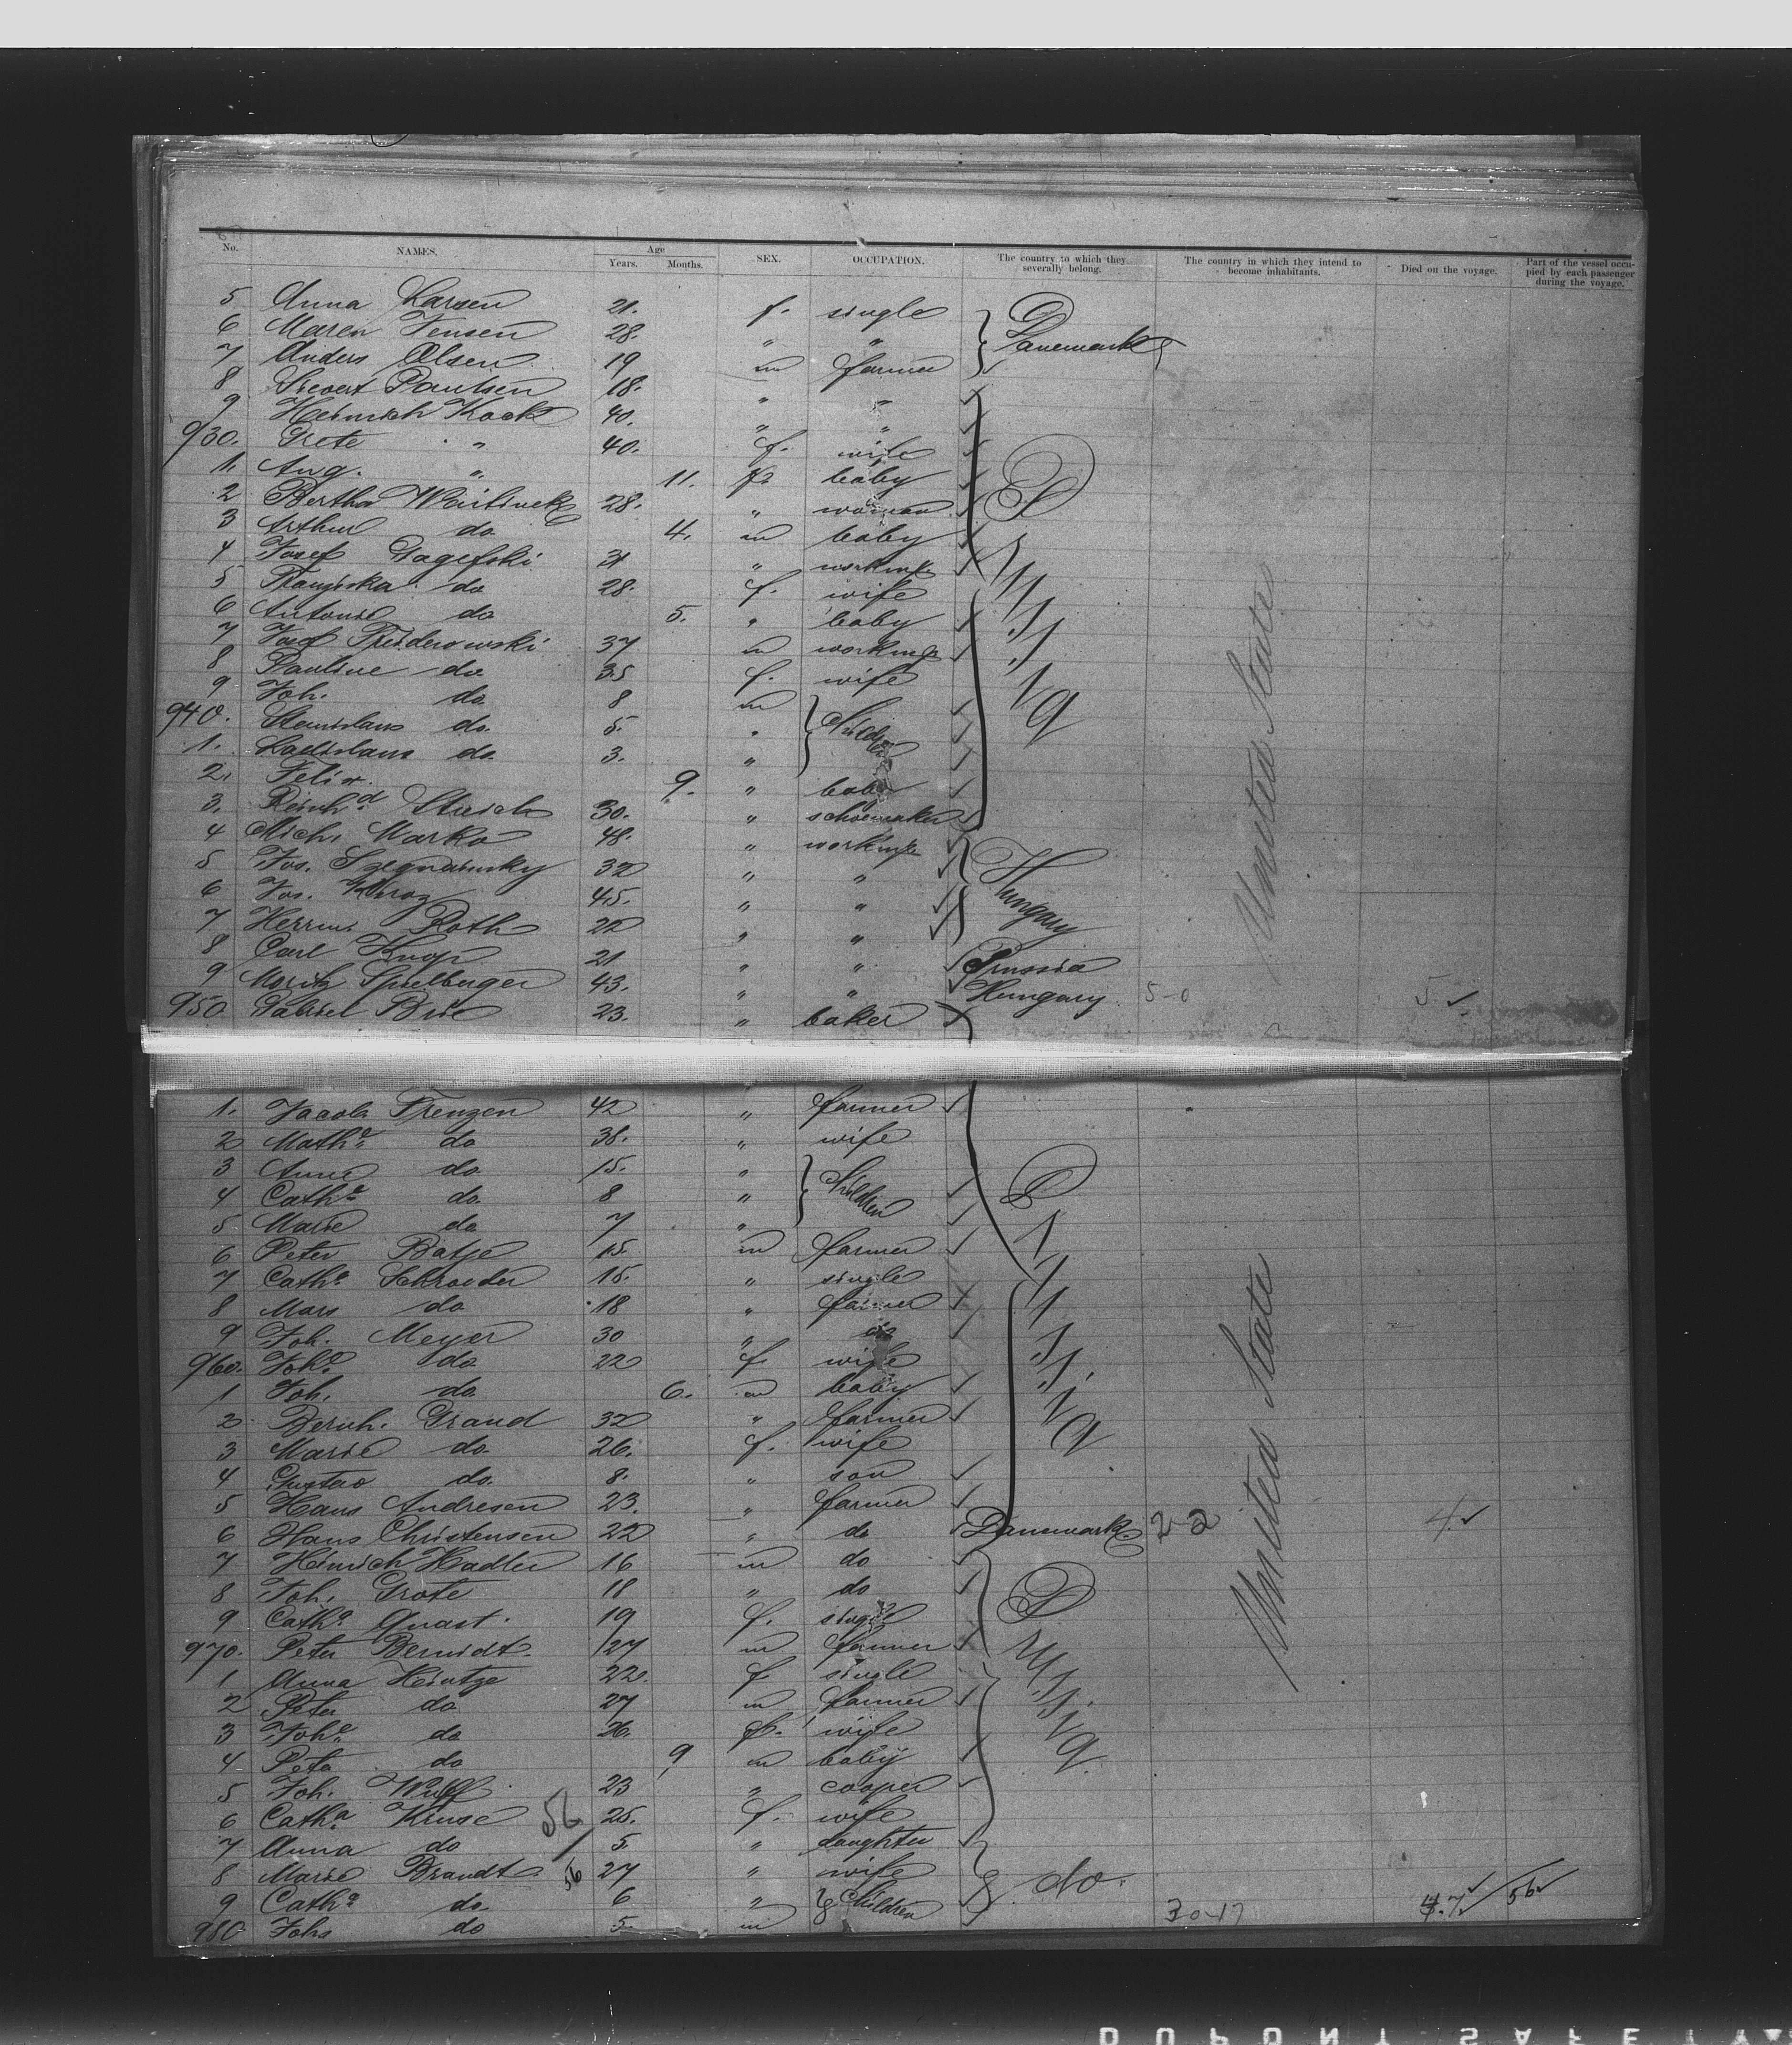 No. NAMES. Age Years. Months. SEX. OCCUPATION. The country to which they severally belong. The country in which they intend to become inhabitants. Died on the voyage. Part of the vessel occupied by each passenger during the voyage.
5 Anna Larsen 21. f. single
6 Maren Jensen 28. " " Danemark
7 Anders Olsen 19 m farmer
8 Sievert Paulsen 18. " "
9 Heinrich Kock 40. " "
930. Grete " 40. f. wife
1. Aug. " 11. f. baby
2 Bertha 28. " woman
3 Arthur do 4. m baby
4 Josef 31 "
5 Franziska do 28. f. wife
6 Antonie do 5. " baby
7 Josef 37 m
8 Pauline do 35 f. wife
9 Joh. do 8 m
940. Stanislaus do. 5. " Children
1. Ladislaus do. 3. "
2. Felix 9. " baby
3. Reinhd 30. " schoemaker
4 Mich. Marko 48. "
5 Jos. 32 " "
6 Jos. 45. " " Hungary
7 Herrm. Roth 22 " "
8 Carl Knop 21 " " Prussia
9 Moritz Spielberger 43. " " Hungary 5-0 5
950 Gabriel 23. " baker
United State
1. Jacob Frenzen 42 " farmer
2 Mathe do 38. " wife
3 Anna do 15. "
4 Cathe do. 8 " Children
5 Marie do 7 "
6 Peter Batje 15. m farmer
7 Cathe Schroeder 15. " single
8 Marx do 18 " farmer
9 Joh. Meyer 30 " do
960. Johe do 22 f. wife
1 Joh. do 6. m baby
2 Bernh. Grand 32 " farmer
3 Marie do. 26. f. wife
4 Gustav do. 8. " son
5 Hans Andresen 23. " farmer
6 Hans Christensen 22 " do Danemark 2-2 4
7 Heinrich Hadler 16 m do
8 Joh. Grote 18 " do
9 Catha Quast. 19 f. single
970. Peter Berndt. 27 m farmer
1 Anna Heintze 22. f. single
2 Peter do 27 m farmer
3 Johe do 26. f. wife
4 Peter do 9 m baby
5 Joh. Wulff 23 " cooper
6 Catha Kruse 56 25. f. wife
7 Anna do 5. " daughter
8 Marie Brandt 56 27 " wife do.
9 Catha do 6 " Children
980 Johs do 5. m 30-17 47. 56
United State
DUPONT SAFETY